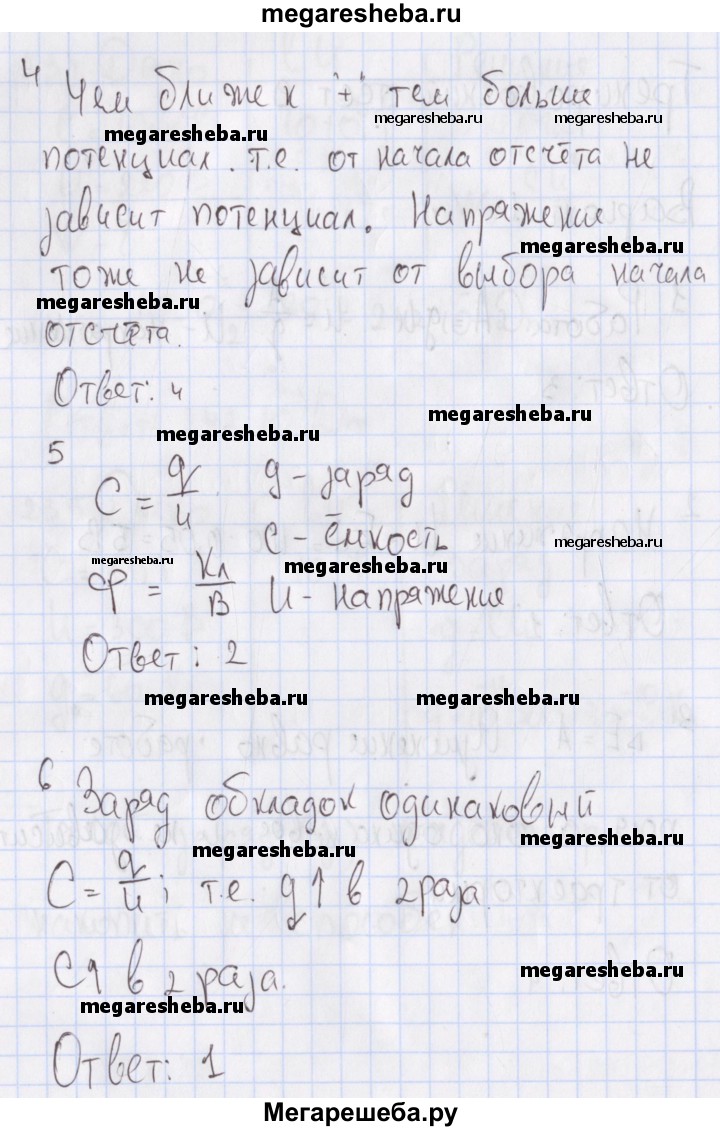 megaresheba.ru
4 Чем ближе к "+" тем больше
megaresheba.ru megaresheba.ru megaresheba.ru
потенциал. т.е. от начала отсчёта не
зависит потенциал. Напряжение
megaresheba.ru
тоже не зависит от выбора начала
megaresheba.ru
отсчёта.
Ответ: 4
megaresheba.ru
megaresheba.ru
5
C = q/u q - заряд
C - ёмкость
megaresheba.ru
megaresheba.ru megaresheba.ru
Ф = Кл/В U - напряжение
Ответ: 2
megaresheba.ru megaresheba.ru
6 Заряд обкладок одинаковый
megaresheba.ru megaresheba.ru
C = q/u; т.е. q↑ в 2 раза.
C↑ в 2 раза.
megaresheba.ru
megaresheba.ru
Ответ: 1
Мегарешеба.ру